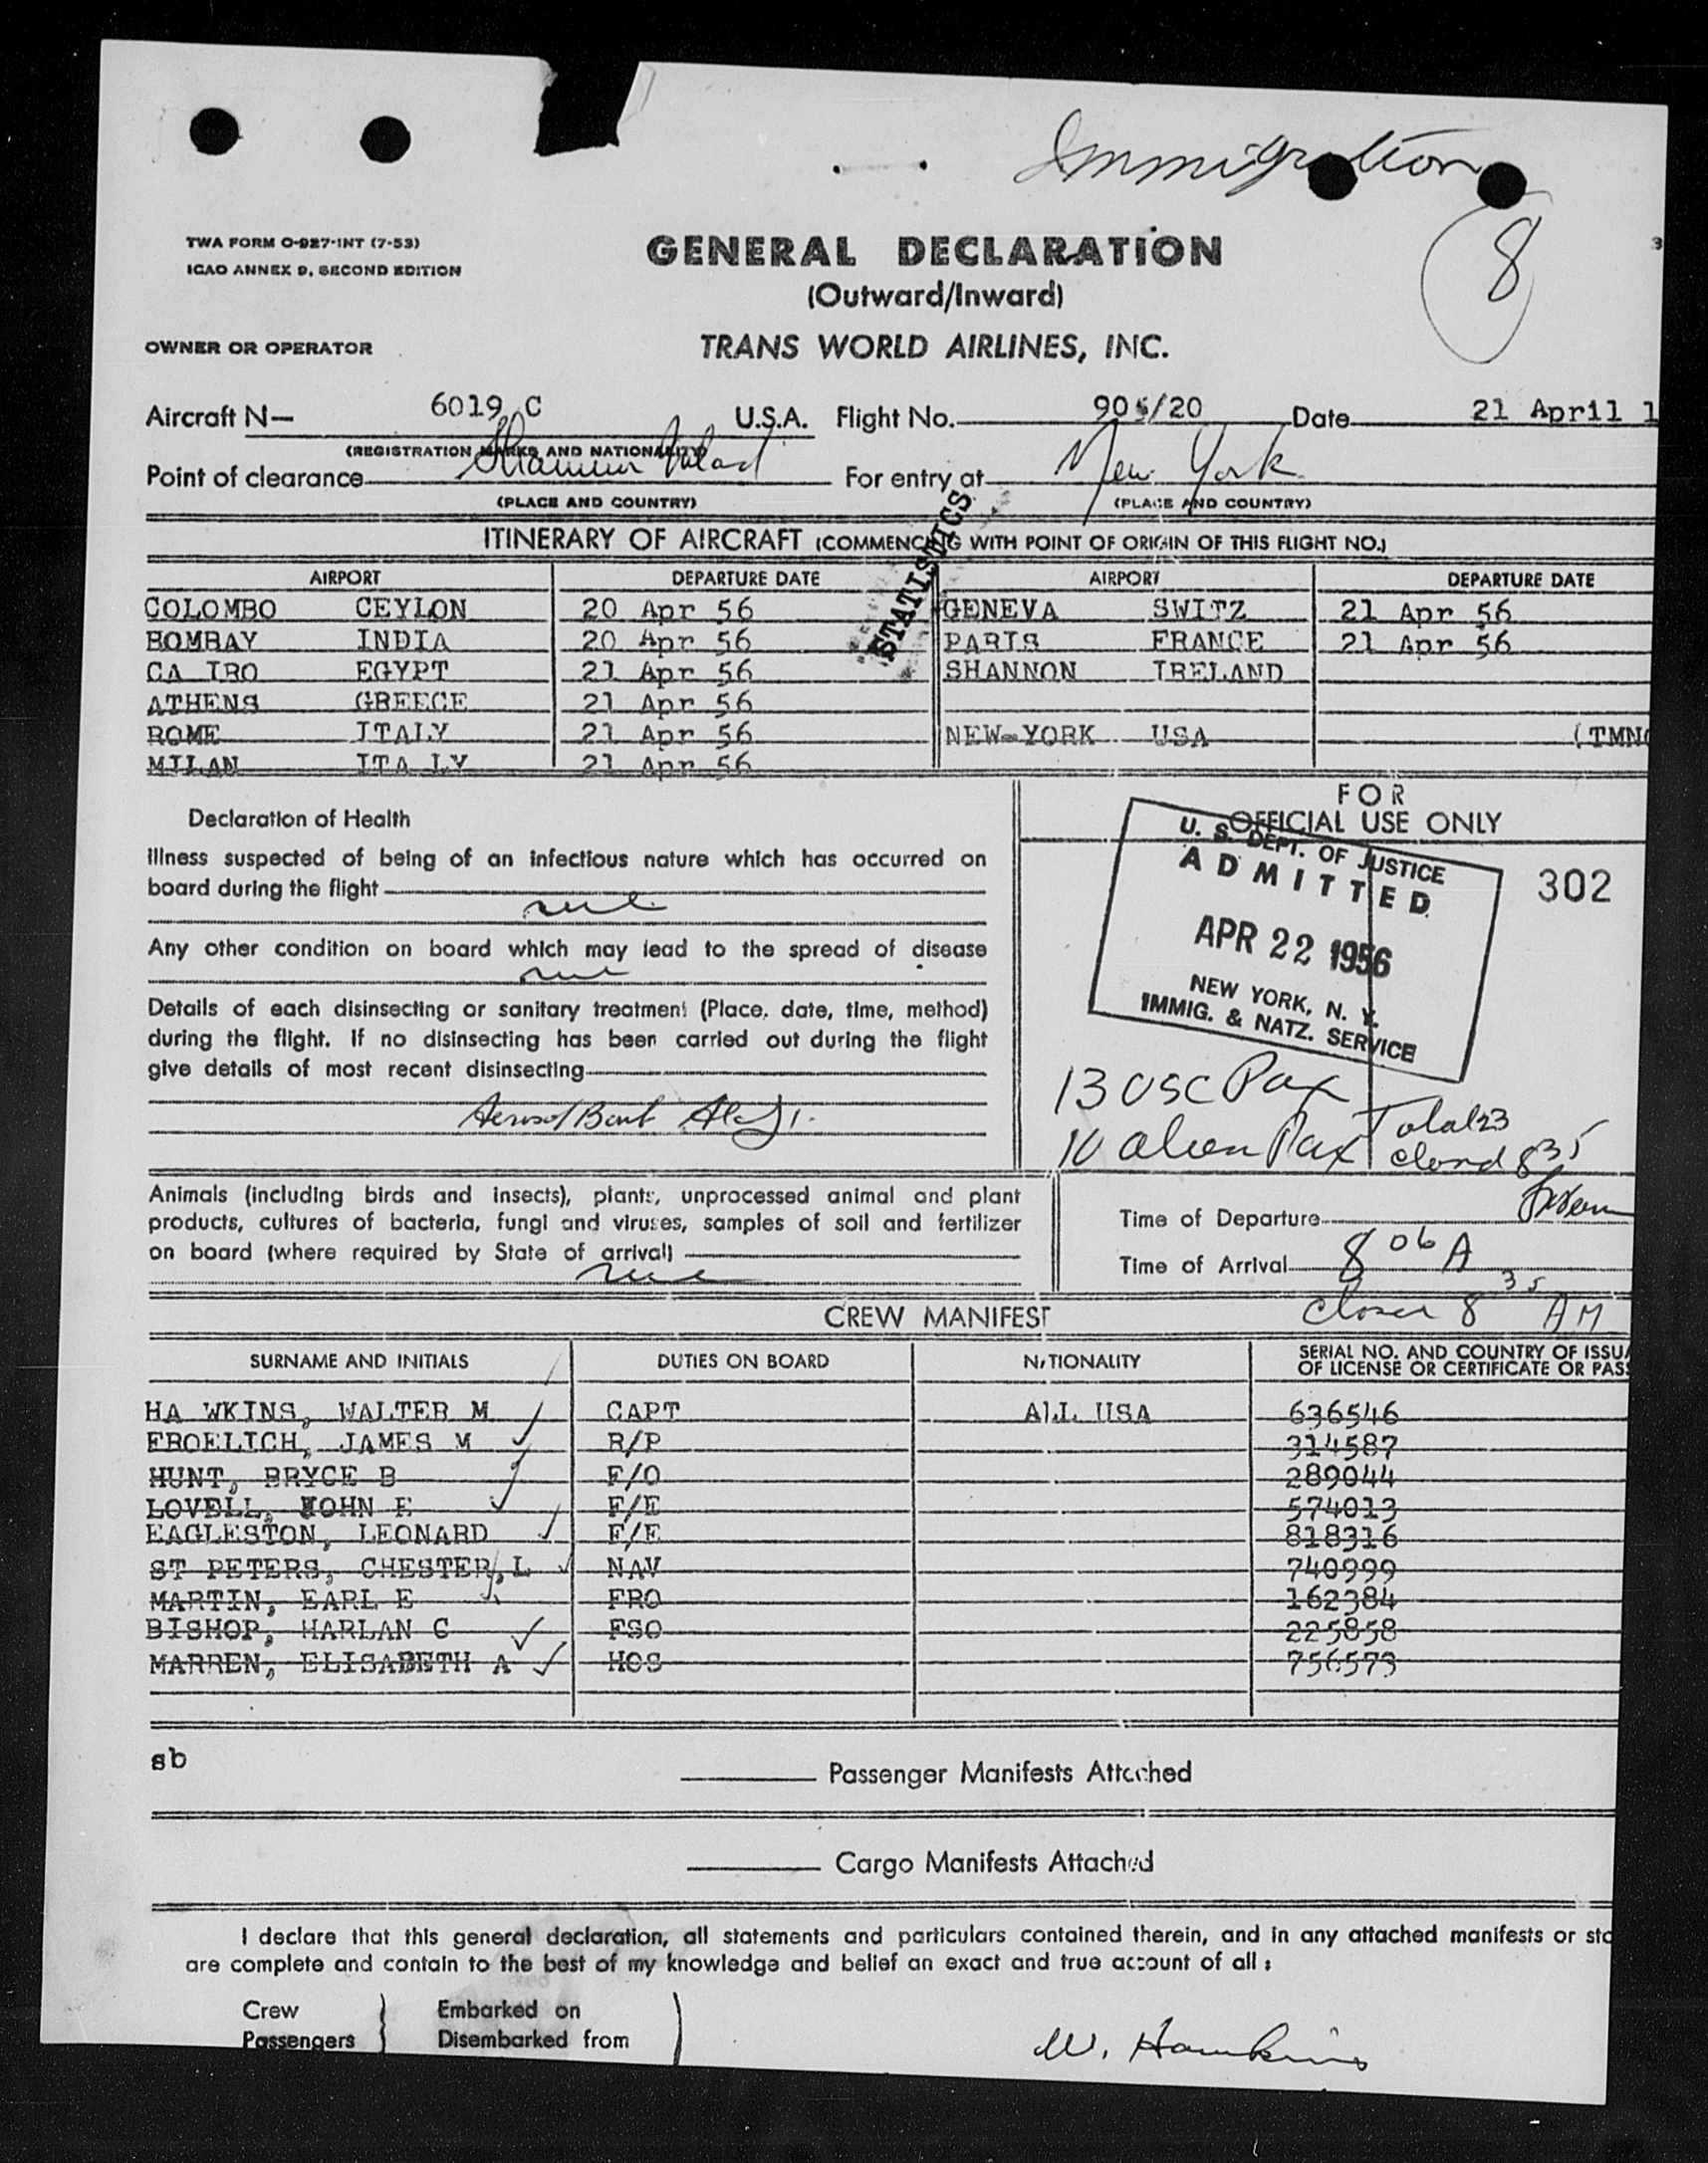 Immigration
8
TWA FORM O-927-INT (7-53)
ICAO ANNEX 9, SECOND EDITION
GENERAL DECLARATION
(Outward/Inward)
OWNER OR OPERATOR
TRANS WORLD AIRLINES, INC.
Aircraft N— 6019 C U.S.A. Flight No. 905/20 Date 21 April 1
(REGISTRATION MARKS AND NATIONALITY)
Point of clearance For entry at New York
(PLACE AND COUNTRY) (PLACE AND COUNTRY)
STATISTICS
ITINERARY OF AIRCRAFT (COMMENCING WITH POINT OF ORIGIN OF THIS FLIGHT NO.)
AIRPORT DEPARTURE DATE AIRPORT DEPARTURE DATE
COLOMBO CEYLON 20 Apr 56 GENEVA SWITZ 21 Apr 56
BOMBAY INDIA 20 Apr 56 PARIS FRANCE 21 Apr 56
CA IRO EGYPT 21 Apr 56 SHANNON IRELAND
ATHENS GREECE 21 Apr 56
ROME ITALY 21 Apr 56 NEW-YORK USA (TMN
MILAN ITA LY 21 Apr 56
FOR
OFFICIAL USE ONLY
Declaration of Health
Illness suspected of being of an infectious nature which has occurred on
board during the flight
Any other condition on board which may lead to the spread of disease
Details of each disinsecting or sanitary treatment (Place, date, time, method)
during the flight. If no disinsecting has been carried out during the flight
give details of most recent disinsecting
Aerosol Bomb
U. S. DEPT. OF JUSTICE
ADMITTED
APR 22 1956
NEW YORK, N. Y.
IMMIG. & NATZ. SERVICE
302
13 USC Pax
10 alien Pax Total 23
closed 8 35
Animals (including birds and insects), plants, unprocessed animal and plant
products, cultures of bacteria, fungi and viruses, samples of soil and fertilizer
on board (where required by State of arrival)
Time of Departure
Time of Arrival 8 06 A
closed 8 35 AM
CREW MANIFEST
SURNAME AND INITIALS DUTIES ON BOARD NATIONALITY SERIAL NO. AND COUNTRY OF ISSU
OF LICENSE OR CERTIFICATE OR PAS
HA WKINS, WALTER M CAPT ALL USA 636546
FROELICH, JAMES M R/P 314587
HUNT, BRYCE B F/O 289044
LOVELL, JOHN E F/E 574013
EAGLESTON, LEONARD F/E 818316
ST PETERS, CHESTER, L NAV 740999
MARTIN, EARL E FRO 162384
BISHOP, HARLAN C FSO 225858
MARREN, ELISABETH A HOS 756573
sb
Passenger Manifests Attached
Cargo Manifests Attached
I declare that this general declaration, all statements and particulars contained therein, and in any attached manifests or sta
are complete and contain to the best of my knowledge and belief an exact and true account of all :
Crew Embarked on
Passengers Disembarked from
W. Hawkins